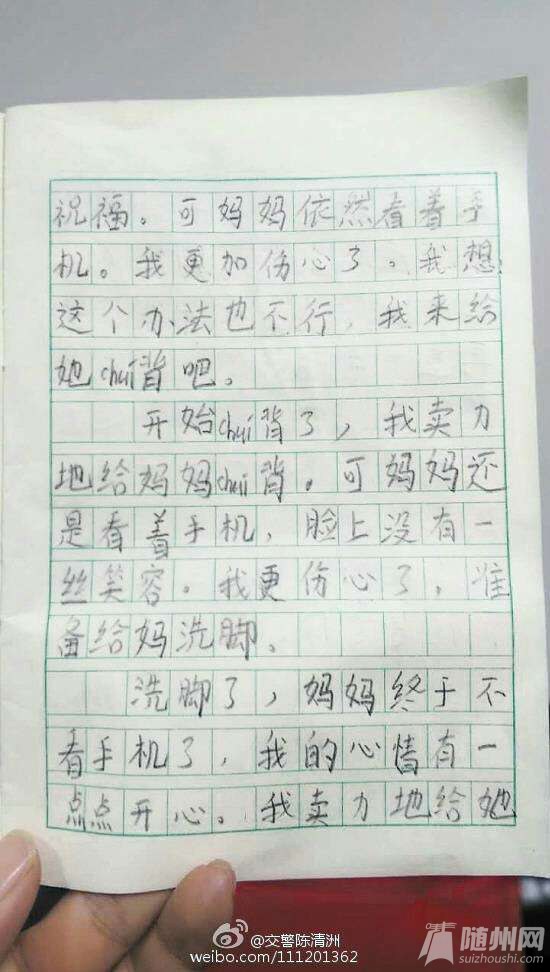 祝福。可妈妈依然看着手
机。我更加伤心了。我想：
这个办法也不行，我来给
她chuí背吧。
开始chuí背了，我卖力
地给妈妈chuí背。可妈妈还
是看着手机，脸上没有一
丝笑容。我更伤心了，准
备给妈洗脚。
洗脚了，妈妈终于不
看手机了，我的心情有一
点点开心。我卖力地给她
@交警陈清洲
weibo.com/111201362
随州网
suizhoushi.com